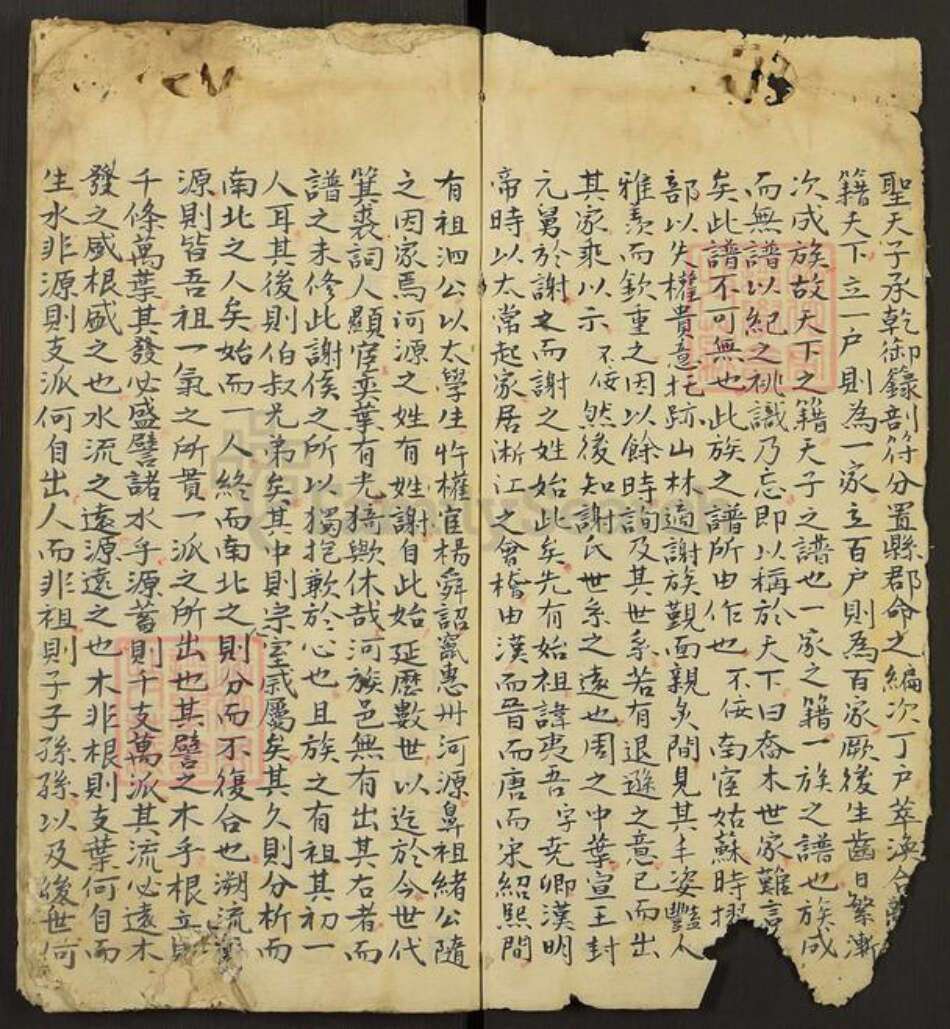 聖天子承乾御籙剖符分置縣郡命之編次丁戸萃渙合
籍天下立一户則為一家立百户則為百家厥後生齒日繁漸
次成族故天下之籍天子之譜也一家之籍一族之譜也族成
而無譜以紀之桃識乃忘即以稱於天下曰喬木世家難言
矣此譜不可無也此族之譜所由作也不佞南宦姑蘇時摺
部以失權貴意托跡山林適謝族覿面親炙間見其丰姿豔人
雅羨而欽重之因以餘時詢及其世系若有退遜之意已而出
其家乘以示不佞然後知謝氏世系之遠也周之中葉宣王封
元舅於謝之而謝之姓始此矣先有始祖諱夷吾字尭卿漢明
帝時以太常起家居淅江之會稽由漢而晉而唐而宋紹熙間
有祖泗公以太學生忤權宦楊舜詔竄惠州河源鼻祖緒公隨
之因家焉河源之姓有姓謝自此始延歷數世以迄於今世代
箕裘詞人顯宦奕葉有光猗歟休哉河族邑無有出其右者而
譜之未修此謝侯之所以獨抱歉於心也且族之有祖其初一
人耳其後則伯叔兄弟矣其中則宗室戚屬矣其久則分析而
南北之人矣始而一人終而南北之則分而不復合也溯流
源則皆吾祖一氣之所貫一派之所出也其譬之木乎根立
千條萬葉其發必盛譬諸水乎源蓄則千支萬派其流必遠木
發之盛根盛之也水流之遠源遠之也木非根則支葉何自而
生水非源則支派何自出人而非祖則子子孫孫以及後世何